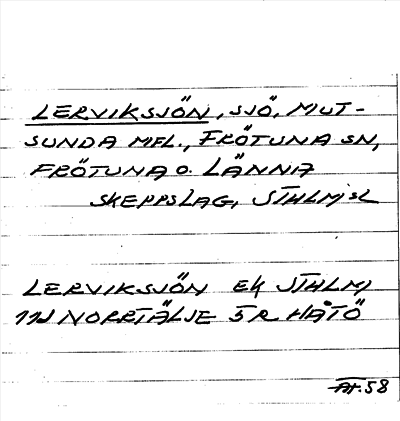 LERVIKSJÖN, SJÖ, MUT-
SUNDA MFL., FRÖTUNA SN,
FRÖTUNA O. LÄNNA
SKEPPSLAG, STHLMSL
LERVIKSJÖN EK STHLM,
11J NORRTÄLJE 5R HÅTÖ
58